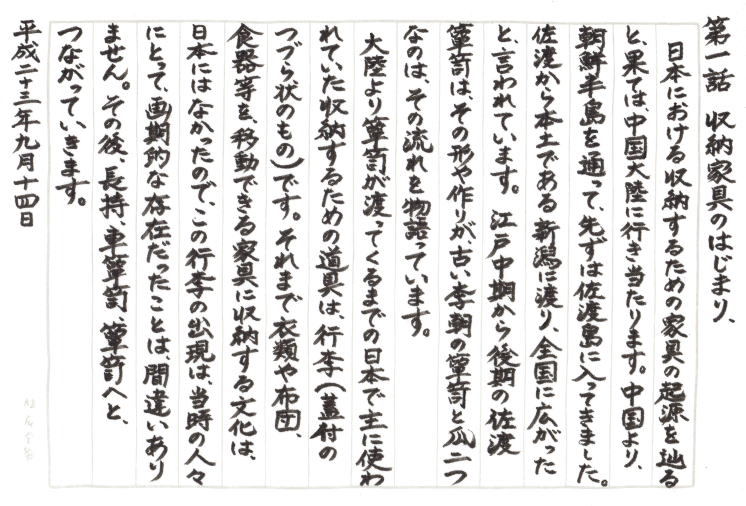 第一話　収納家具のはじまり、
日本における収納するための家具の起源を辿る
と、果ては、中国大陸に行き当たります。中国より、
朝鮮半島を通って、先ずは佐渡島に入ってきました。
佐渡から本土である新潟に渡り、全国に広がった
と、言われています。江戸中期から後期の佐渡
箪笥は、その形や作りが、古い李朝の箪笥と瓜二つ
なのは、その流れを物語っています。
大陸より箪笥が渡ってくるまでの日本で主に使わ
れていた収納するための道具は、行李(蓋付の
つづら状のもの)です。それまで衣類や布団、
食器等を、移動できる家具に収納する文化は、
日本にはなかったので、この行李の出現は、当時の人々
にとって、画期的な存在だったことは、間違いあり
ません。その後、長持、車箪笥、箪笥へと、
つながっていきます。
平成二十三年九月十四日